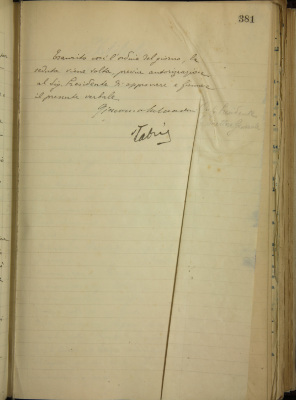 381
Esaurito così l'ordine del giorno, la
seduta viene tolta, previa autorizzazione
al Sig. Presidente di approvare e firmare
il presente verbale.